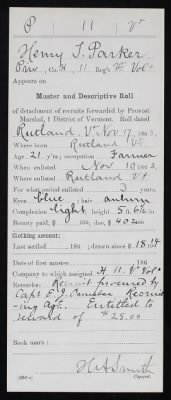 P 11 Vt
Henry T. Parker
Priv., Co. H, 11 Reg't Vt Vols
Appears on
Muster and Descriptive Roll
of detachment of recruits forwarded by Provost
Marshal, 1 District of Vermont. Roll dated
Rutland, Vt Nov 17, 1863.
Where born Rutland Vt
Age 21 y'rs; occupation Farmer
When enlisted Nov 10, 1863
Where enlisted Rutland Vt
For what period enlisted 3 years.
Eyes blue; hair auburn
Complexion light; height 5 ft. 6½ in.
Bounty paid, $ 100; due, $ 402 100
Clothing account:
Last settled 186 ; drawn since $ 18.24 100
Date of first muster , 186
Company to which assigned H. 11. Vt Vols
Remarks: Recruit procured by
Capt E. J. Recruit
-ing Agt. Entitled to
reward of $25.00.
Book mark:
H A Smith
Copyist.